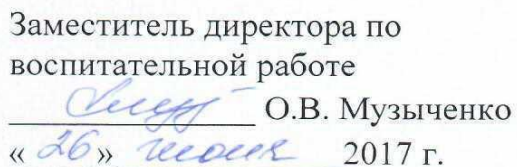 Заместитель директора по
воспитательной работе
О.В. Музыченко
« 26 » июня 2017 г.